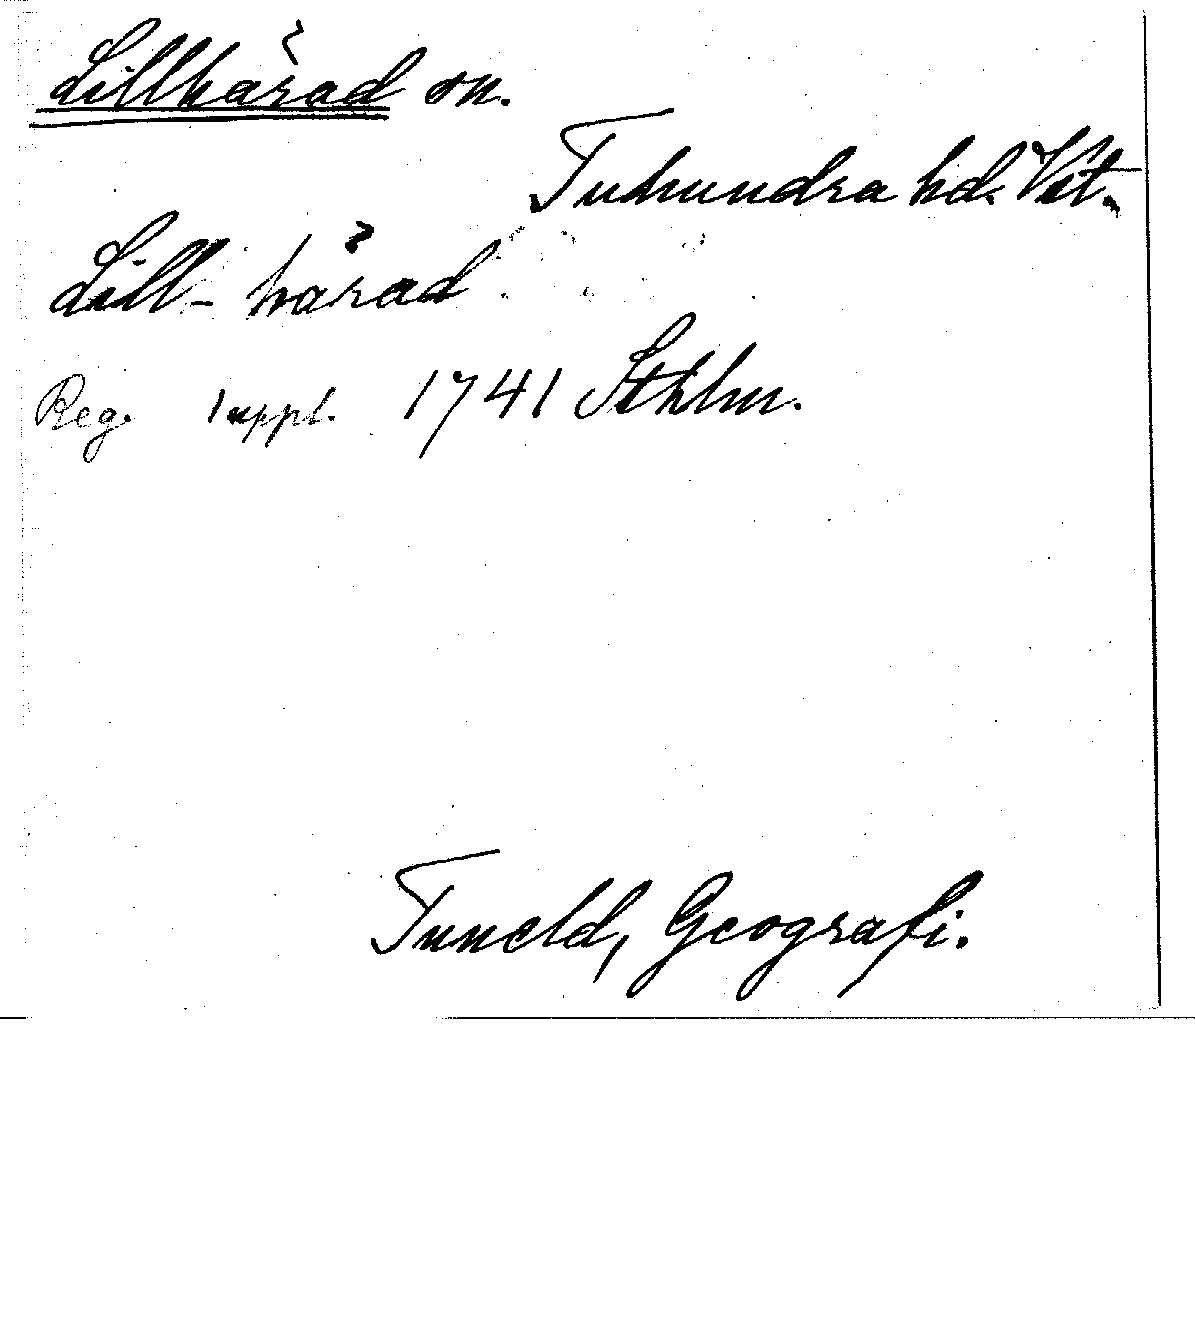 Lillhärad sn.
Tuhundra hd. Vstm.
Lill-härad
Reg. suppl. 1741 Sthlm.
Tuneld, Geografi.